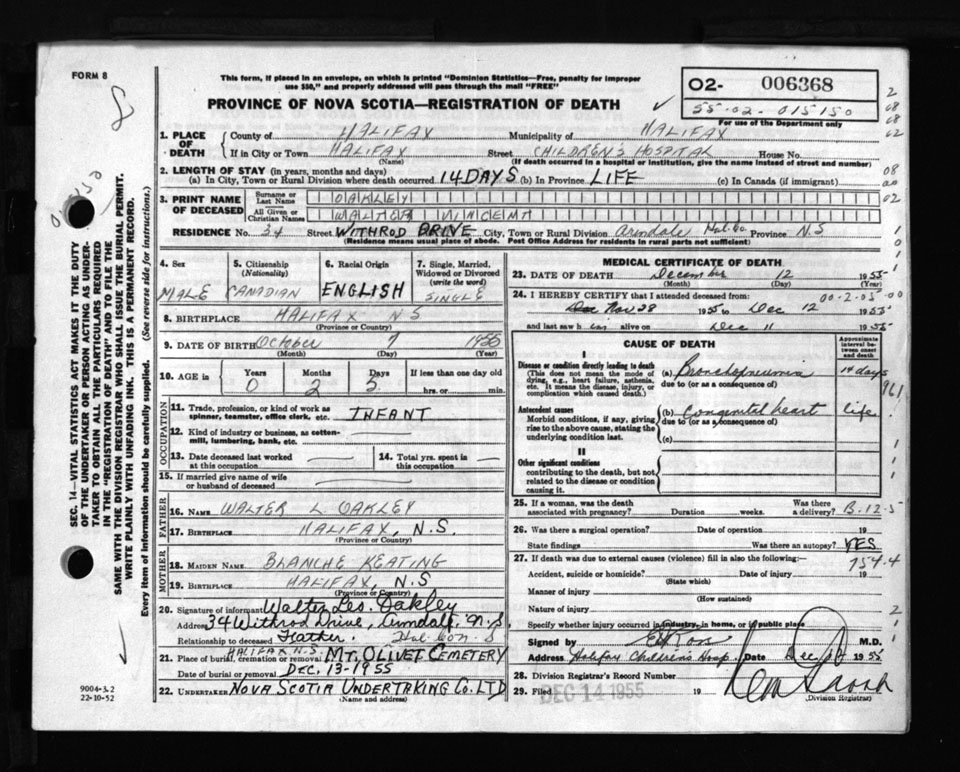 FORM 8
This form, if placed in an envelope, on which is printed "Dominion Statistics—Free, penalty for improper
use $50," and properly addressed will pass through the mail "FREE"
PROVINCE OF NOVA SCOTIA—REGISTRATION OF DEATH
02- 006368
55-02-015150
For use of the Department only
1. PLACE OF DEATH County of HALIFAX Municipality of HALIFAX
If in City or Town HALIFAX Street CHILDREN'S HOSPITAL House No.
(Name) (If death occurred in a hospital or institution, give the name instead of street and number)
2. LENGTH OF STAY (in years, months and days)
(a) In City, Town or Rural Division where death occurred 14 DAYS (b) In Province LIFE (c) In Canada (if immigrant)
3. PRINT NAME OF DECEASED Surname or Last Name OAKLEY
All Given or Christian Names WALTER VINCENT
RESIDENCE No. 34 Street WITHROD DRIVE City, Town or Rural Division Armdale Hal. Co. Province N.S
(Residence means usual place of abode. Post Office Address for residents in rural parts not sufficient)
4. Sex MALE
5. Citizenship (Nationality) CANADIAN
6. Racial Origin ENGLISH
7. Single, Married, Widowed or Divorced (write the word) SINGLE
8. BIRTHPLACE HALIFAX NS
(Province or Country)
9. DATE OF BIRTH October 7 1955
(Month) (Day) (Year)
10. AGE in Years 0 Months 2 Days 5 If less than one day old hrs. or min.
OCCUPATION
11. Trade, profession, or kind of work as spinner, teamster, office clerk, etc. INFANT
12. Kind of industry or business, as cotton-mill, lumbering, bank, etc.
13. Date deceased last worked at this occupation
14. Total yrs. spent in this occupation
15. If married give name of wife or husband of deceased
FATHER
16. NAME WALTER L OAKLEY
17. BIRTHPLACE HALIFAX, N.S.
(Province or Country)
MOTHER
18. MAIDEN NAME BLANCHE KEATING
19. BIRTHPLACE HALIFAX, N.S
(Province or Country)
20. Signature of informant Walter Leo. Oakley
Address 34 Withrod Drive, Armdale N.S.
Relationship to deceased Father.
21. Place of burial, cremation or removal HALIFAX N.S. MT. OLIVET CEMETERY
Date of burial or removal DEC. 13-1955
22. UNDERTAKER NOVA SCOTIA UNDERTAKING CO. LTD
(Name and address)
MEDICAL CERTIFICATE OF DEATH
23. DATE OF DEATH December 12 1955
(Month) (Day) (Year)
00-2-05-00
24. I HEREBY CERTIFY that I attended deceased from:
Dec Nov 28 1955 to Dec 12 1955
and last saw him alive on Dec 11 1955
CAUSE OF DEATH
Approximate interval between onset and death
I
Disease or condition directly leading to death
(This does not mean the mode of dying, e.g., heart failure, asthenia, etc. It means the disease, injury, or complication which caused death.)
(a) Bronchopneumonia 14 days
due to (or as a consequence of)
Antecedent causes
Morbid conditions, if any, giving rise to the above cause, stating the underlying condition last.
(b) Congenital heart life
due to (or as a consequence of)
(c)
II
Other significant conditions
contributing to the death, but not related to the disease or condition causing it.
25. If a woman, was the death associated with pregnancy? Duration weeks. Was there a delivery?
26. Was there a surgical operation? Date of operation 19
State findings Was there an autopsy? YES
754.4
27. If death was due to external causes (violence) fill in also the following:
Accident, suicide or homicide? Date of injury 19
(State which)
Manner of injury
(How sustained)
Nature of injury
Specify whether injury occurred in industry, in home, or in public place
Signed by E Ross M.D.
Address Halifax Children's Hosp. Date Dec 1955
28. Division Registrar's Record Number
29. Filed DEC 14 1955 19
(Division Registrar)
9004-3.2
22-10-52
SEC. 14—VITAL STATISTICS ACT MAKES IT THE DUTY
OF THE UNDERTAKER OR PERSON ACTING AS UNDER-
TAKER TO OBTAIN ALL THE PARTICULARS REQUIRED
IN THE "REGISTRATION OF DEATH" AND TO FILE THE
SAME WITH THE DIVISION REGISTRAR WHO SHALL ISSUE THE BURIAL PERMIT.
WRITE PLAINLY WITH UNFADING INK. THIS IS A PERMANENT RECORD.
Every item of information should be carefully supplied. (See reverse side for instructions.)